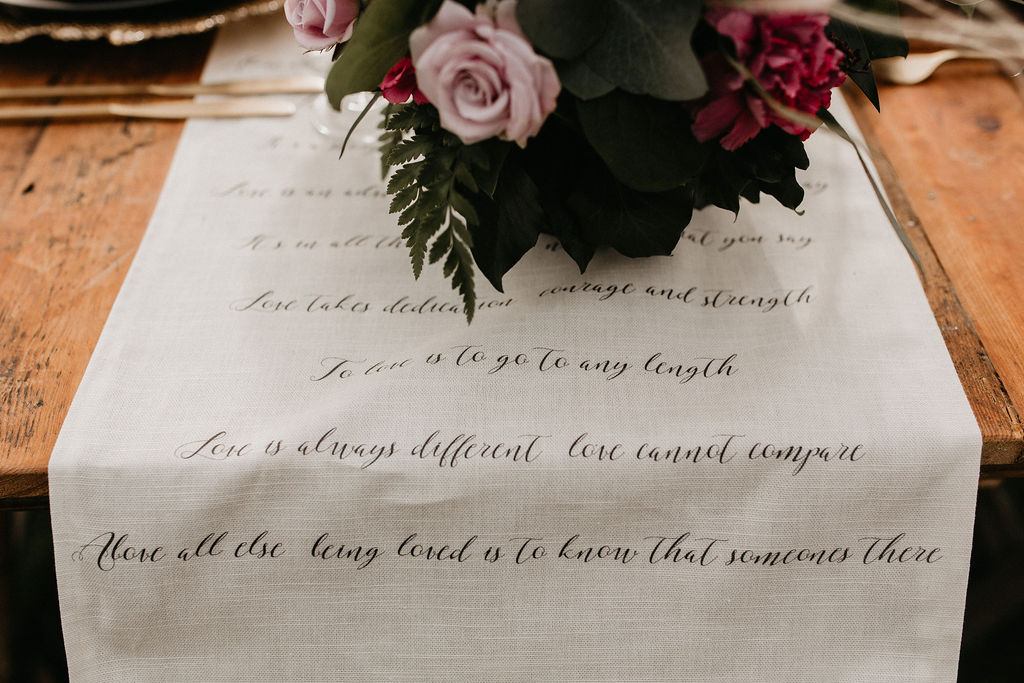 Love is an
It's in all that you say
Love takes dedication courage and strength
To love is to go to any length
Love is always different love cannot compare
Above all else being loved is to know that someones there